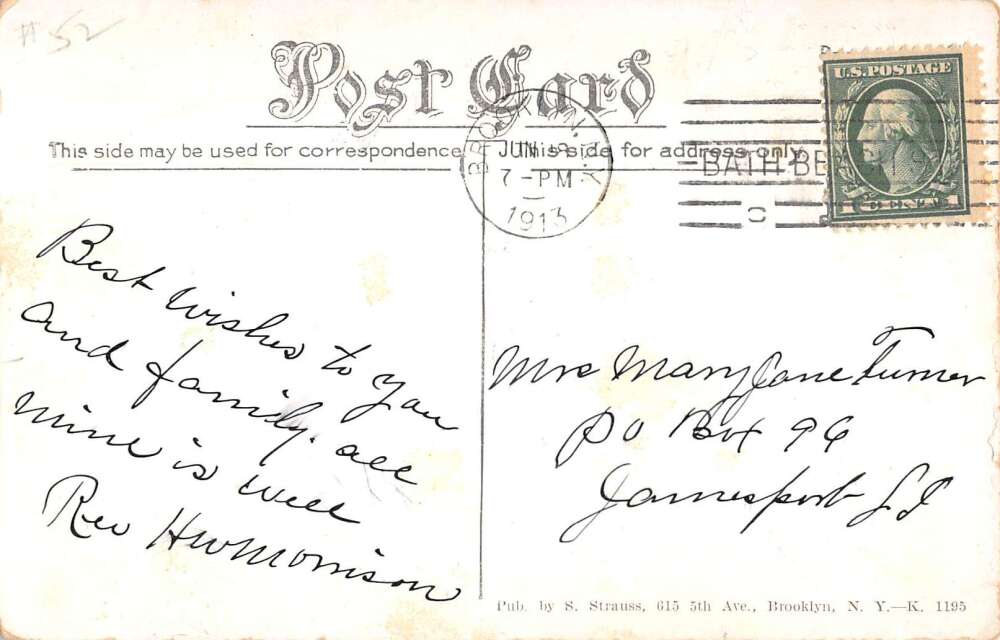 #52
Post Card
This side may be used for correspondence
This side for address only.
BROOKLYN, N.Y.
JUN
7-PM
1913
BATH BE
U.S. POSTAGE
1 CENT 1
Best Wishes to you
and family. all
mine is well
Rev HwMorrison
Mrs Mary Jane Turner
PO Box 96
Jamesport L I
Pub. by S. Strauss, 615 5th Ave., Brooklyn, N. Y.—K. 1195